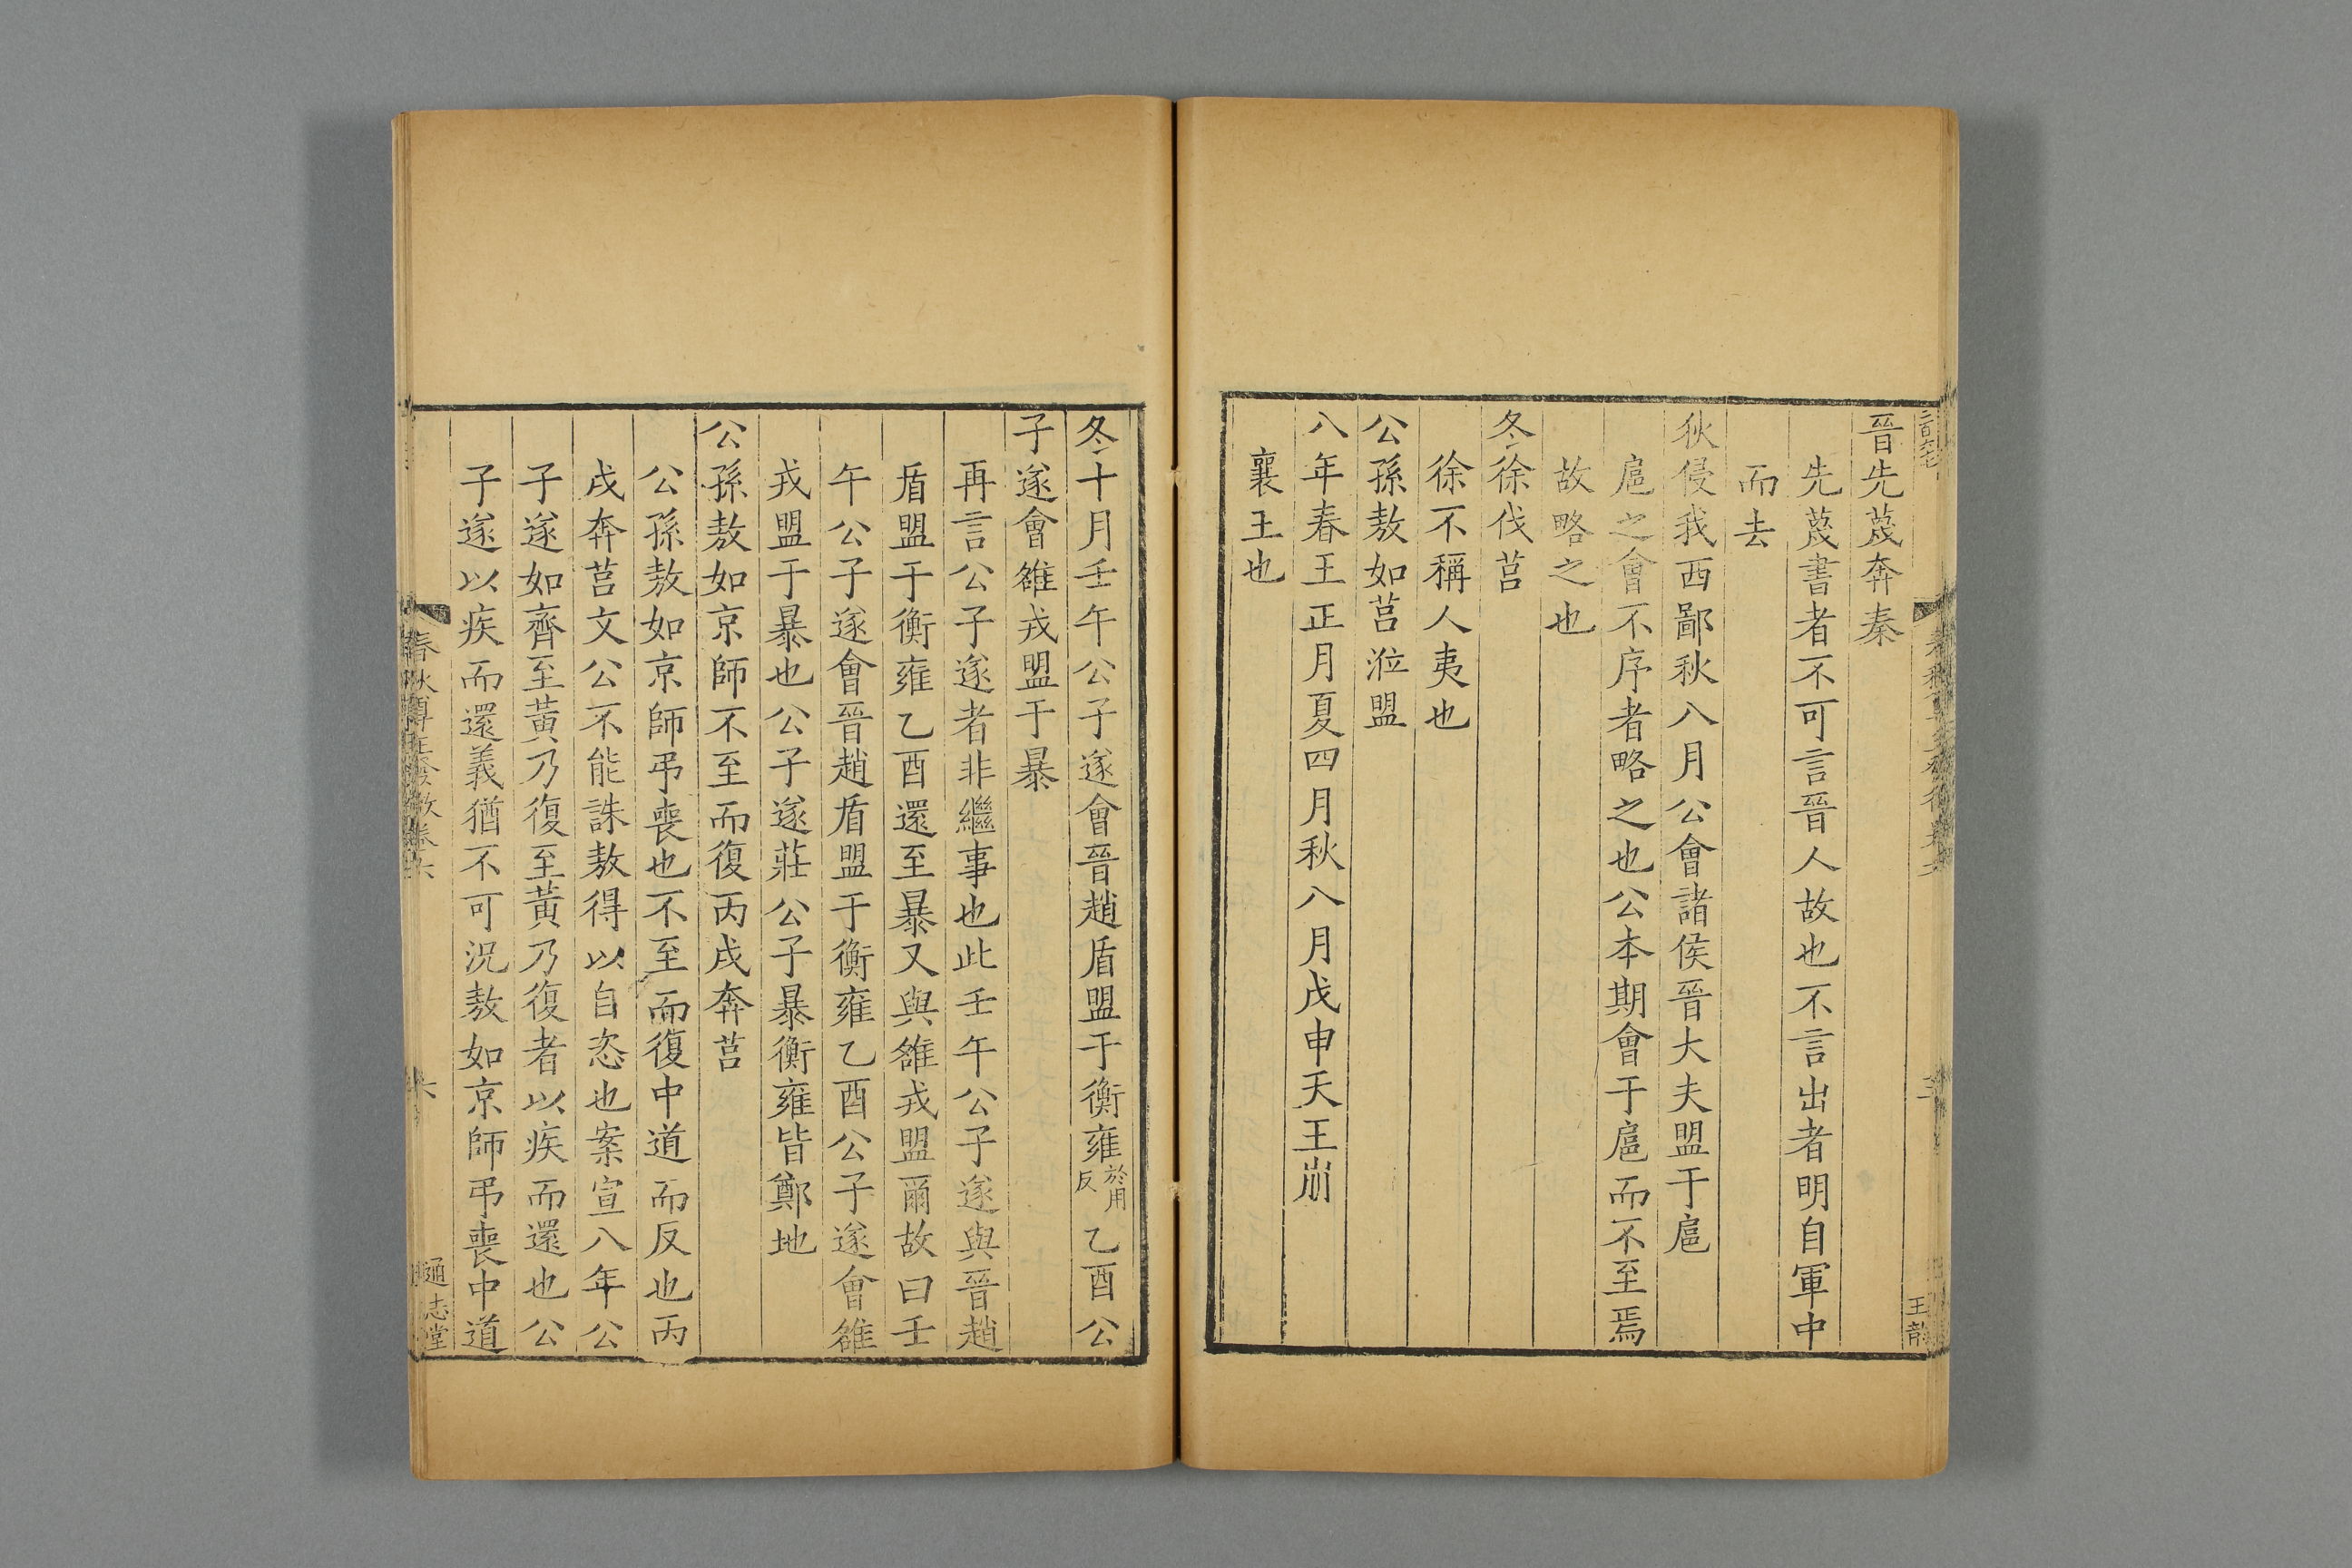 晉先蔑奔秦
先蔑書者不可言晉人故也不言出者明自軍中
而去
狄侵我西鄙秋八月公會諸侯晉大夫盟于扈
扈之會不序者略之也公本期會于扈而不至焉
故略之也
冬徐伐莒
徐不稱人夷也
公孫敖如莒涖盟
八年春王正月夏四月秋八月戊申天王崩
襄王也
冬十月壬午公子遂會晉趙盾盟于衡雍於用反乙酉公
子遂會雒戎盟于暴
再言公子遂者非繼事也此壬午公子遂與晉趙
盾盟于衡雍乙酉還至暴又與雒戎盟爾故曰壬
午公子遂會晉趙盾盟于衡雍乙酉公子遂會雒
戎盟于暴也公子遂莊公子暴衡雍皆鄭地
公孫敖如京師不至而復丙戌奔莒
公孫敖如京師弔喪也不至而復中道而反也丙
戌奔莒文公不能誅敖得以自恣也案宣八年公
子遂如齊至黃乃復至黃乃復者以疾而還也公
子遂以疾而還義猶不可況敖如京師弔喪中道
通志堂